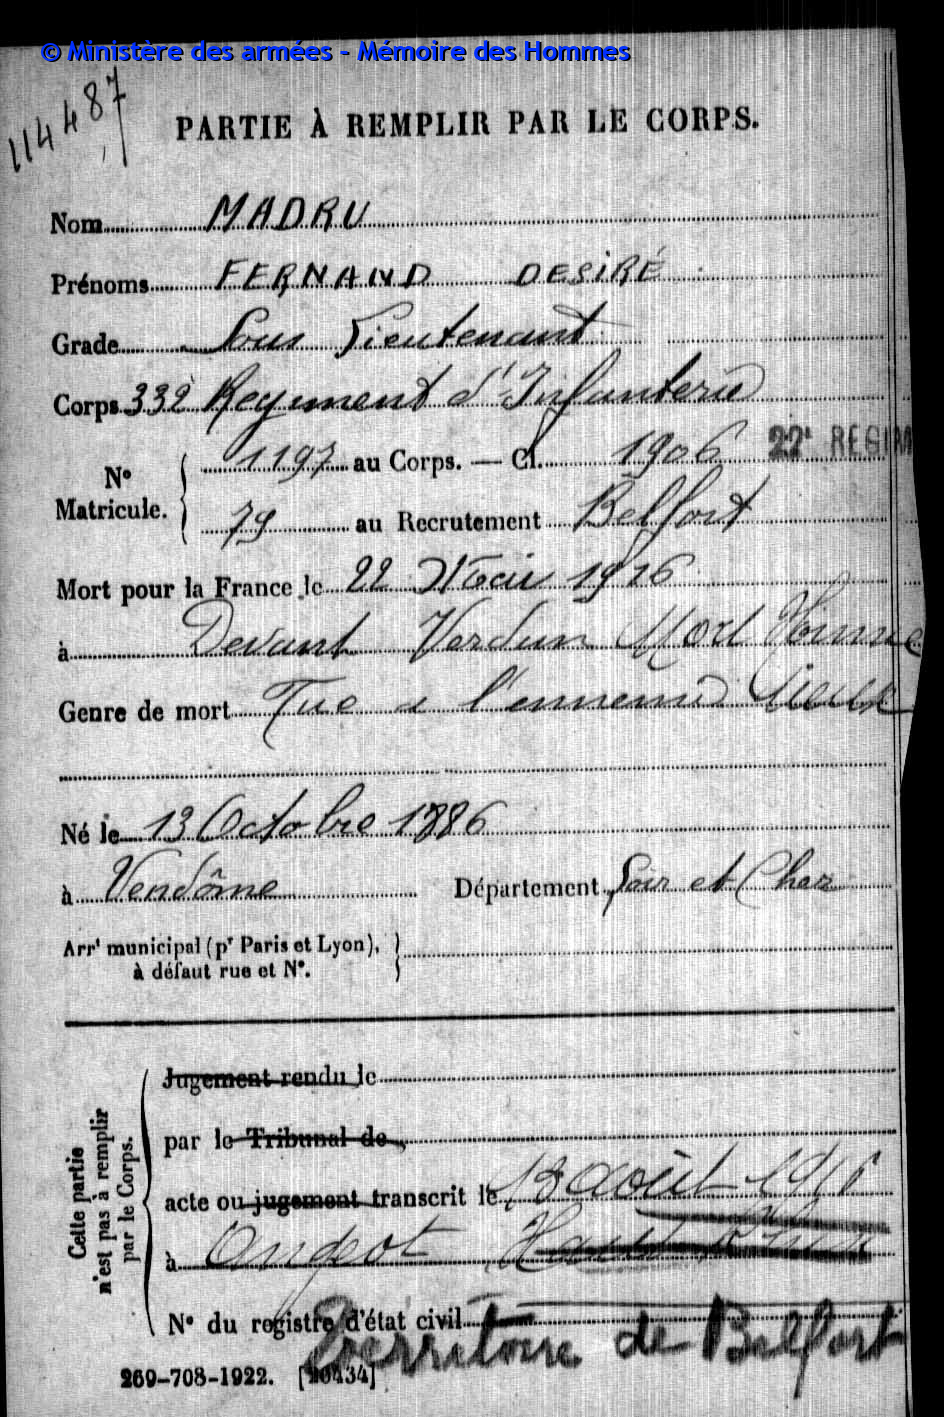 © Ministère des armées - Mémoire des Hommes
114487
PARTIE À REMPLIR PAR LE CORPS.
Nom MADRU
Prénoms FERNAND DESIRÉ
Grade Sous Lieutenant
Corps 332 Regiment d'Infanterie
22e REGIM
N° Matricule. { 1197 au Corps. — Cl. 1906
79 au Recrutement Belfort
Mort pour la France le 22 Mai 1916
à Devant Verdun Mort Homme
Genre de mort Tué a l'ennemi
Né le 13 Octobre 1886
à Vendôme Département Loir et Cher
Arrt municipal (pr Paris et Lyon), }
à défaut rue et N°.
Cette partie n'est pas à remplir par le Corps.
Jugement rendu le
par le Tribunal de
acte ou jugement transcrit le 13 août 1916
à Angeot Haut Rhin
N° du registre d'état civil
Territoire de Belfort
269-708-1922. [26434]